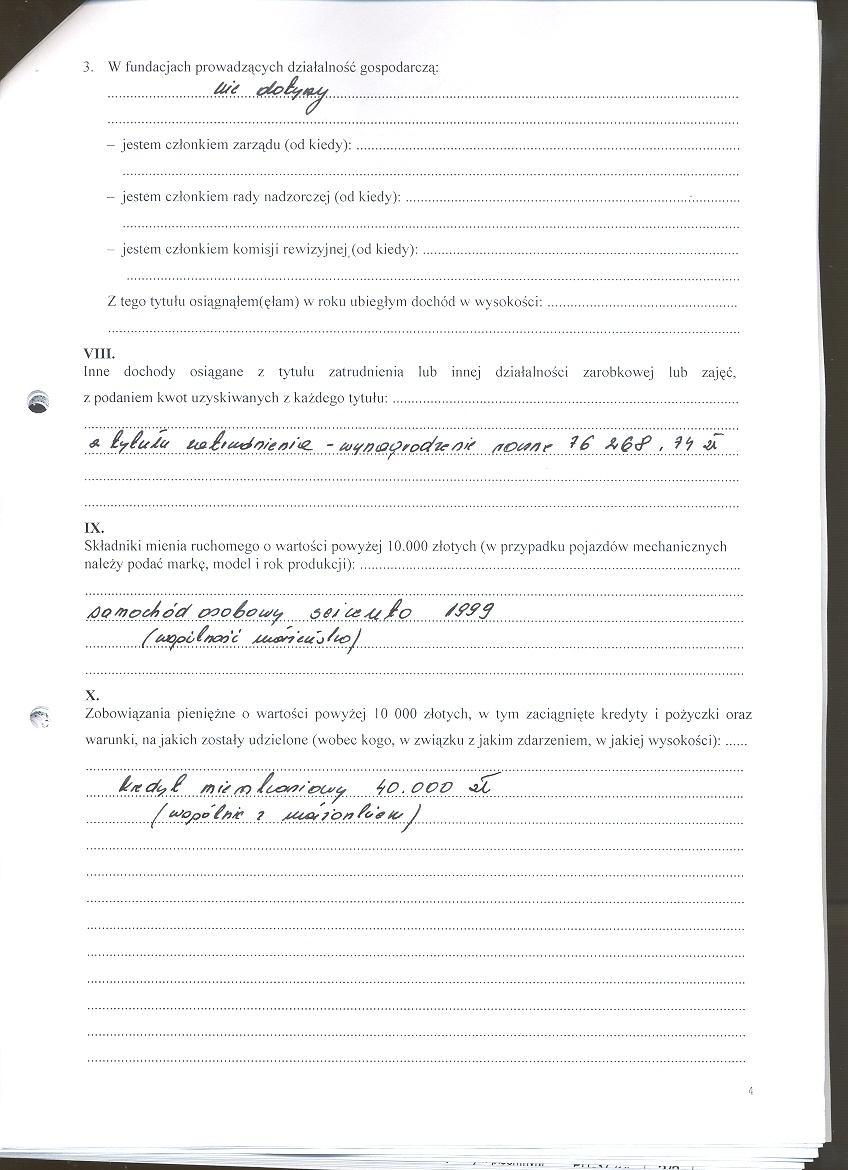 3. W fundacjach prowadzących działalność gospodarczą:
nie dotyczy
– jestem członkiem zarządu (od kiedy):
– jestem członkiem rady nadzorczej (od kiedy):
– jestem członkiem komisji rewizyjnej (od kiedy):
Z tego tytułu osiągnąłem(ęłam) w roku ubiegłym dochód w wysokości:
VIII.
Inne dochody osiągane z tytułu zatrudnienia lub innej działalności zarobkowej lub zajęć,
z podaniem kwot uzyskiwanych z każdego tytułu:
z tytułu zatrudnienia - wynagrodzenie roczne 76 268,74 zł
IX.
Składniki mienia ruchomego o wartości powyżej 10.000 złotych (w przypadku pojazdów mechanicznych
należy podać markę, model i rok produkcji):
samochód osobowy seicento 1999
(wspólność małżeńska)
X.
Zobowiązania pieniężne o wartości powyżej 10 000 złotych, w tym zaciągnięte kredyty i pożyczki oraz
warunki, na jakich zostały udzielone (wobec kogo, w związku z jakim zdarzeniem, w jakiej wysokości):
kredyt mieszkaniowy 40.000 zł
(wspólnie z małżonkiem)
4